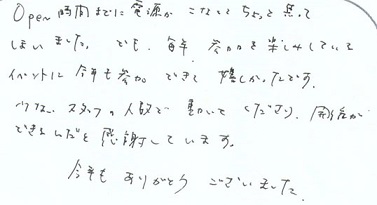 Open 時間までに電源が こなくて ちょっと 焦って
しまいました。でも、毎年、参加を楽しみしている
イベントに 今年も参加 できて 嬉しかったです。
少ない スタッフの人数で 動いて くださり、
できましたを 感謝しています。
今年も ありがとう ございました。